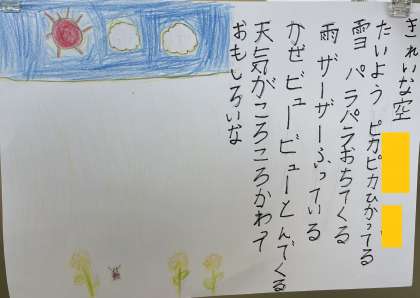 きれいな空
たいようピカピカひかってる
雪パラパラおちてくる
雨ザーザーふっている
かぜビュービューとんでくる
天気がころころかわって
おもしろいな